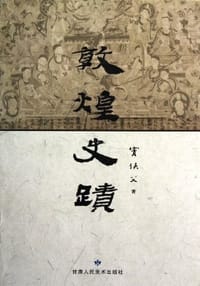 敦煌史蹟
窦侠父 著
甘肃人民美术出版社